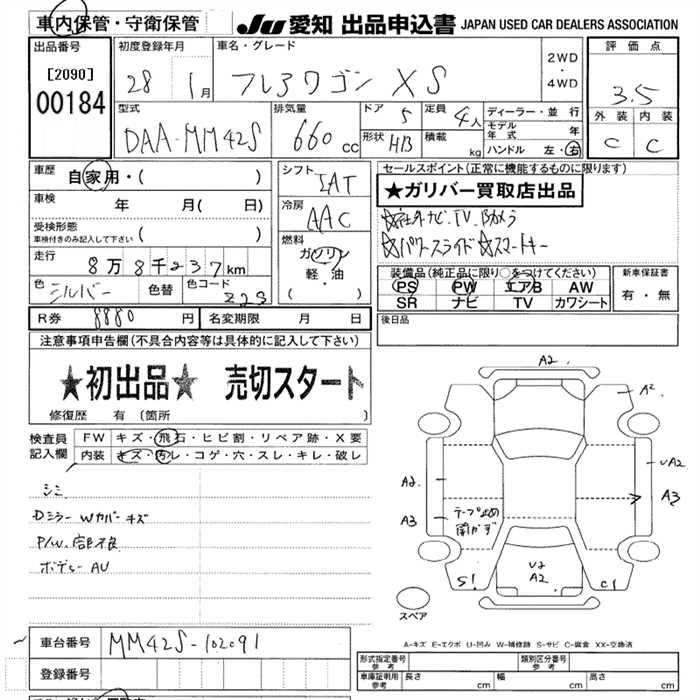 車内保管・守衛保管 JU 愛知 出品申込書 JAPAN USED CAR DEALERS ASSOCIATION
出品番号 初度登録年月 車名・グレード 評価点
[2090] 28 1月 フレアワゴン XS 2WD・4WD 3.5
00184 型式 排気量 ドア 5 定員 4人 ディーラー・並行 外装 内装
DAA-MM42S 660cc 形状 HB 積載 kg モデル年式 年 C C
ハンドル 左・右
車歴 自家用・( ) シフト IAT セールスポイント(正常に機能するものに限ります)
★ガリバー買取店出品
車検 年 月( 日) 冷房 AAC
☆社外ナビ、TV、Bカメラ
受検形態 車検付きのみ記入して下さい ( ) 燃料 ガソリン
☆パワースライド☆スマートキー
走行 8万8千237km 軽・油 ( )
装備品(純正品に限り○をつけてください) 新車保証書
色 シルバー 色替 色コード Z2S
PS PW エアB AW 有・無
SR ナビ TV カワシート
R券 8880円 名変期限 月 日 後日品
注意事項申告欄(不具合内容等は具体的に記入して下さい)
★初出品★ 売切スタート
修復歴 有 (箇所 )
検査員記入欄 FW キズ・飛石・ヒビ割・リペア跡・X要
内装 キズ・汚レ・コゲ・穴・スレ・キレ・破レ
シミ
Dミラー Wカバー キズ
P/W
ボデー AU
A2
A2
UA2
A2
A3
A3
テープ止め
U2
A2
S1
C1
スペア
A-キズ E-エクボ U-凹み W-補修跡 S-サビ C-腐食 XX-交換済
車台番号 MM42S-102091
登録番号
形式指定番号 参考 類別区分番号 参考
車庫証明用 参考 長さ cm 幅 cm 高さ cm